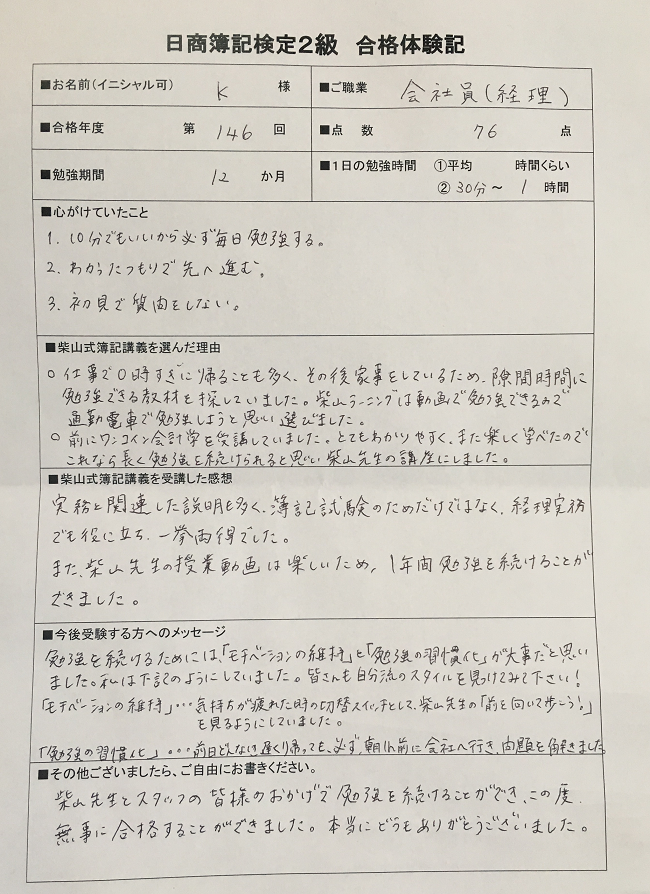 日商簿記検定2級 合格体験記
■お名前(イニシャル可) K 様 ■ご職業 会社員(経理)
■合格年度 第 146 回 ■点 数 76 点
■勉強期間 12 か月 ■1日の勉強時間 ①平均 時間くらい
② 30分~ 1 時間
■心がけていたこと
1. 10分でもいいから必ず毎日勉強する。
2. わかったつもりで先へ進む。
3. 初見で質問をしない。
■柴山式簿記講義を選んだ理由
○ 仕事で0時すぎに帰ることも多く、その後家事をしているため、隙間時間に
勉強できる教材を探していました。柴山ラーニングは動画で勉強できるので
通勤電車で勉強しようと思い選びました。
○ 前にワンコイン会計学を受講していました。とてもわかりやすく、また楽しく学べたので
これなら長く勉強を続けられると思い柴山先生の講座にしました。
■柴山式簿記講義を受講した感想
実務と関連した説明も多く、簿記試験のためだけではなく、経理実務
でも役に立ち、一挙両得でした。
また、柴山先生の授業動画は楽しいため、1年間勉強を続けることが
できました。
■今後受験する方へのメッセージ
勉強を続けるためには、「モチベーションの維持」と「勉強の習慣化」が大事だと思い
ました。私は下記のようにしていました。皆さんも自分流のスタイルを見つけてみて下さい!
「モチベーションの維持」…気持ちが疲れた時の切替スイッチとして、柴山先生の「前を向いて歩こう!」
を見るようにしていました。
「勉強の習慣化」…前日どんなに遅くり帰っても、必ず、朝1h前に会社へ行き、問題を解きました
■その他ございましたら、ご自由にお書きください。
柴山先生とスタッフの皆様のおかげで勉強を続けることができ、この度、
無事に合格することができました。本当にどうもありがとうございました。